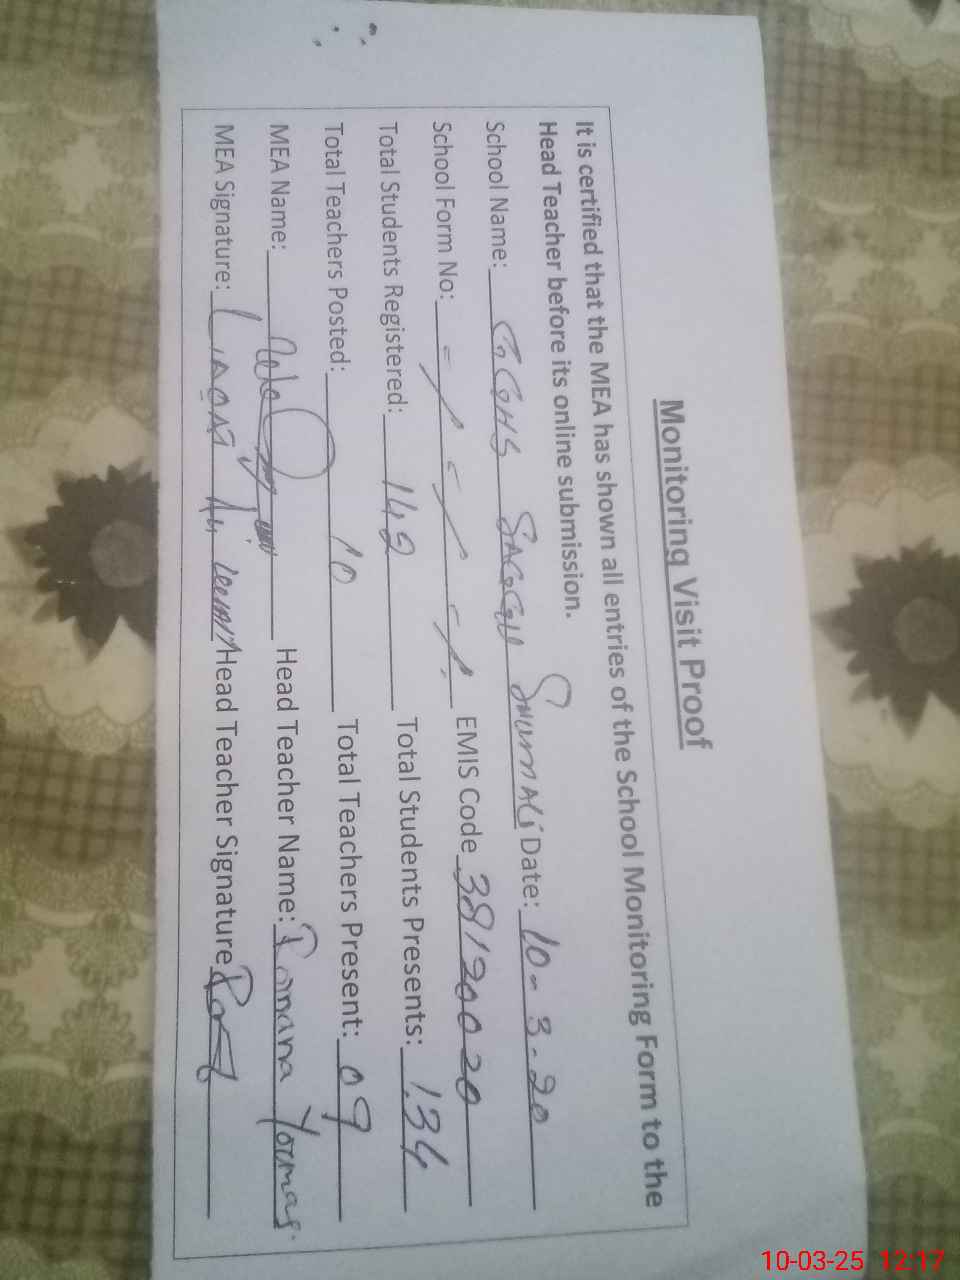 Monitoring Visit Proof
It is certified that the MEA has shown all entries of the School Monitoring Form to the
Head Teacher before its online submission.
School Name: GGHS SAGGU Date: 10-3-20
School Form No: EMIS Code 38120020
Total Students Registered: 142 Total Students Presents: 134
Total Teachers Posted: 10 Total Teachers Present: 09
MEA Name: Head Teacher Name: Romana
MEA Signature: Head Teacher Signature
10-03-25 12:17